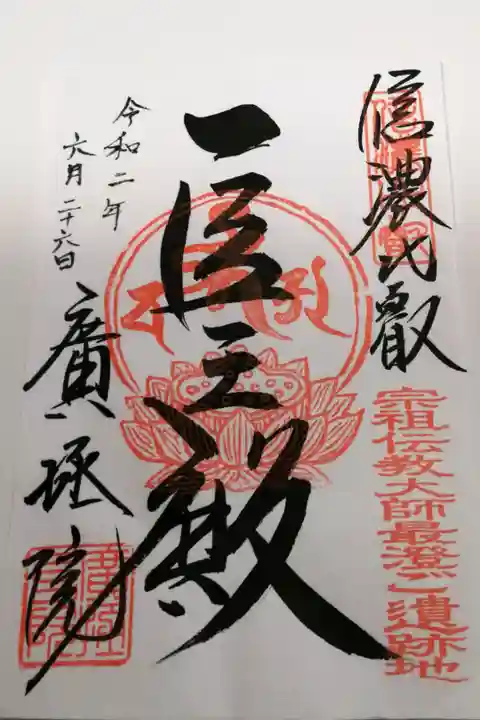 信濃比叡
宗祖伝教大師最澄ご遺跡地
医王殿
令和二年
六月二十六日
廣拯院